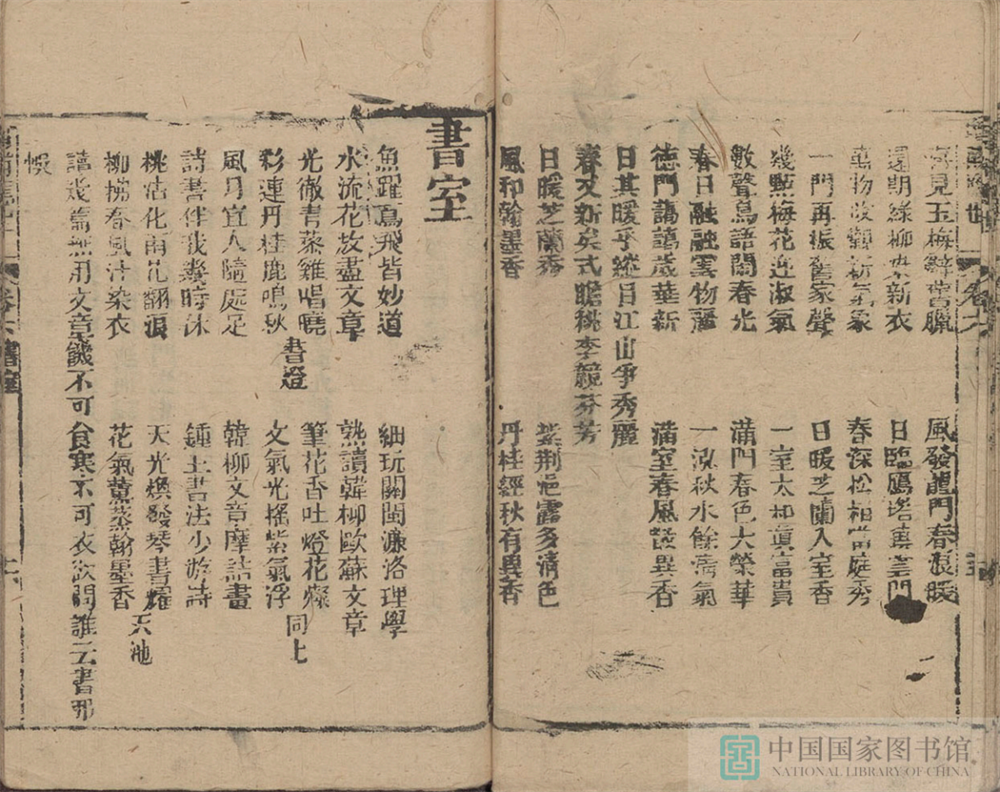 喜見玉梅辭舊臘 風發龍門春浪暖
還期綠柳染新衣 日臨鴈塔真雲門
萬物改觀新氣象 春深松柏當庭秀
一門再振舊家聲 日暖芝蘭入室香
幾點梅花迎淑氣 一室太和真富貴
數聲鳥語鬧春光 滿門春色大榮華
春日融融雲物麗 一泓秋水餘清氣
德門藹藹歲華新 滿室春風發異香
日其暖乎縱目江山爭秀麗
春又新矣式瞻桃李競芬芳
日暖芝蘭秀 紫荆浥露多清色
風和翰墨香 丹桂經秋有異香
書室
魚躍鳶飛皆妙道 細玩關閩濂洛理學
水流花放盡文章 熟讀韓柳歐蘇文章
光徹青藜雞唱曉 筆花香吐燈花燦
彩連丹桂鹿鳴秋 書燈 文氣光搖紫氣浮 同上
風月宜人隨處足 韓柳文章摩詰畫
詩書伴我幾時休 鍾王書法少游詩
桃沾化雨花翻浪 天光煥發琴書耀
柳拂春風汁染衣 花氣薰蒸翰墨香 天池
讀幾篇無用文章饑不可食寒不可衣欲問誰云書那
悞
卷六 書室
中国国家图书馆
NATIONAL LIBRARY OF CHINA